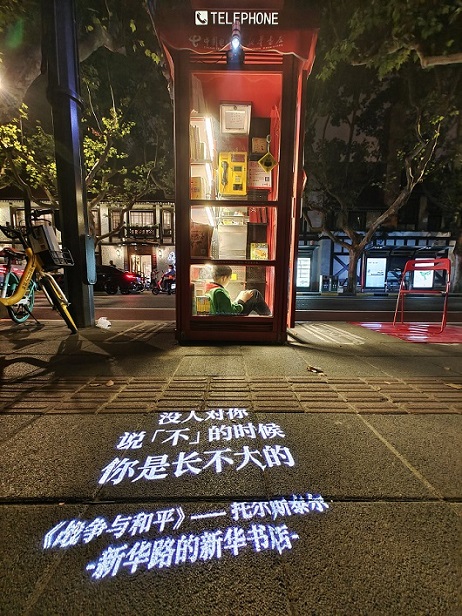 TELEPHONE
没人对你
说「不」的时候
你是长不大的
《战争与和平》——托尔斯泰尔
-新华路的新华书店-